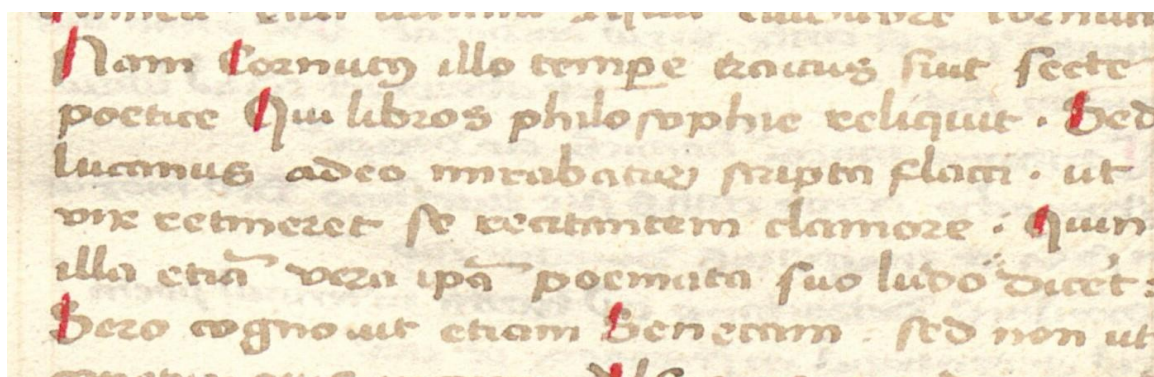 Nam Cornutꝰ illo tempꝑe traicus fuit secte
poetice Qui libros philosophie reliquit . Sed
lucanus adeo mirabatur scripta flacci . ut
vix retineret se recitantem clamore . Quin
illa etiā vera ipā poemata suo ludo dicet :
Sero cognouit etiam Senecam . sed non ut